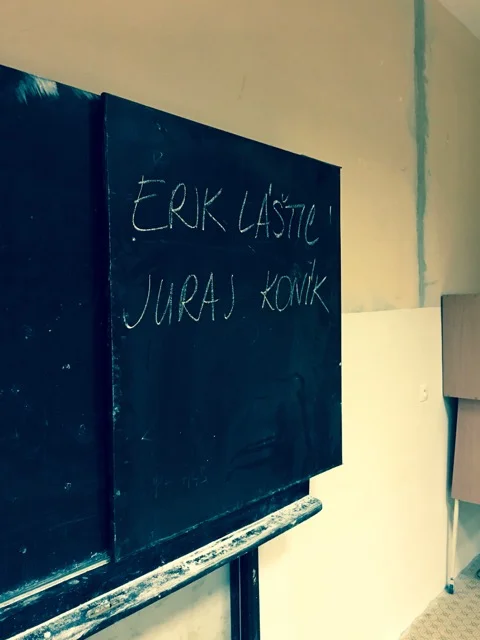 ERIK LÁŠTIC
JURAJ KONÍK